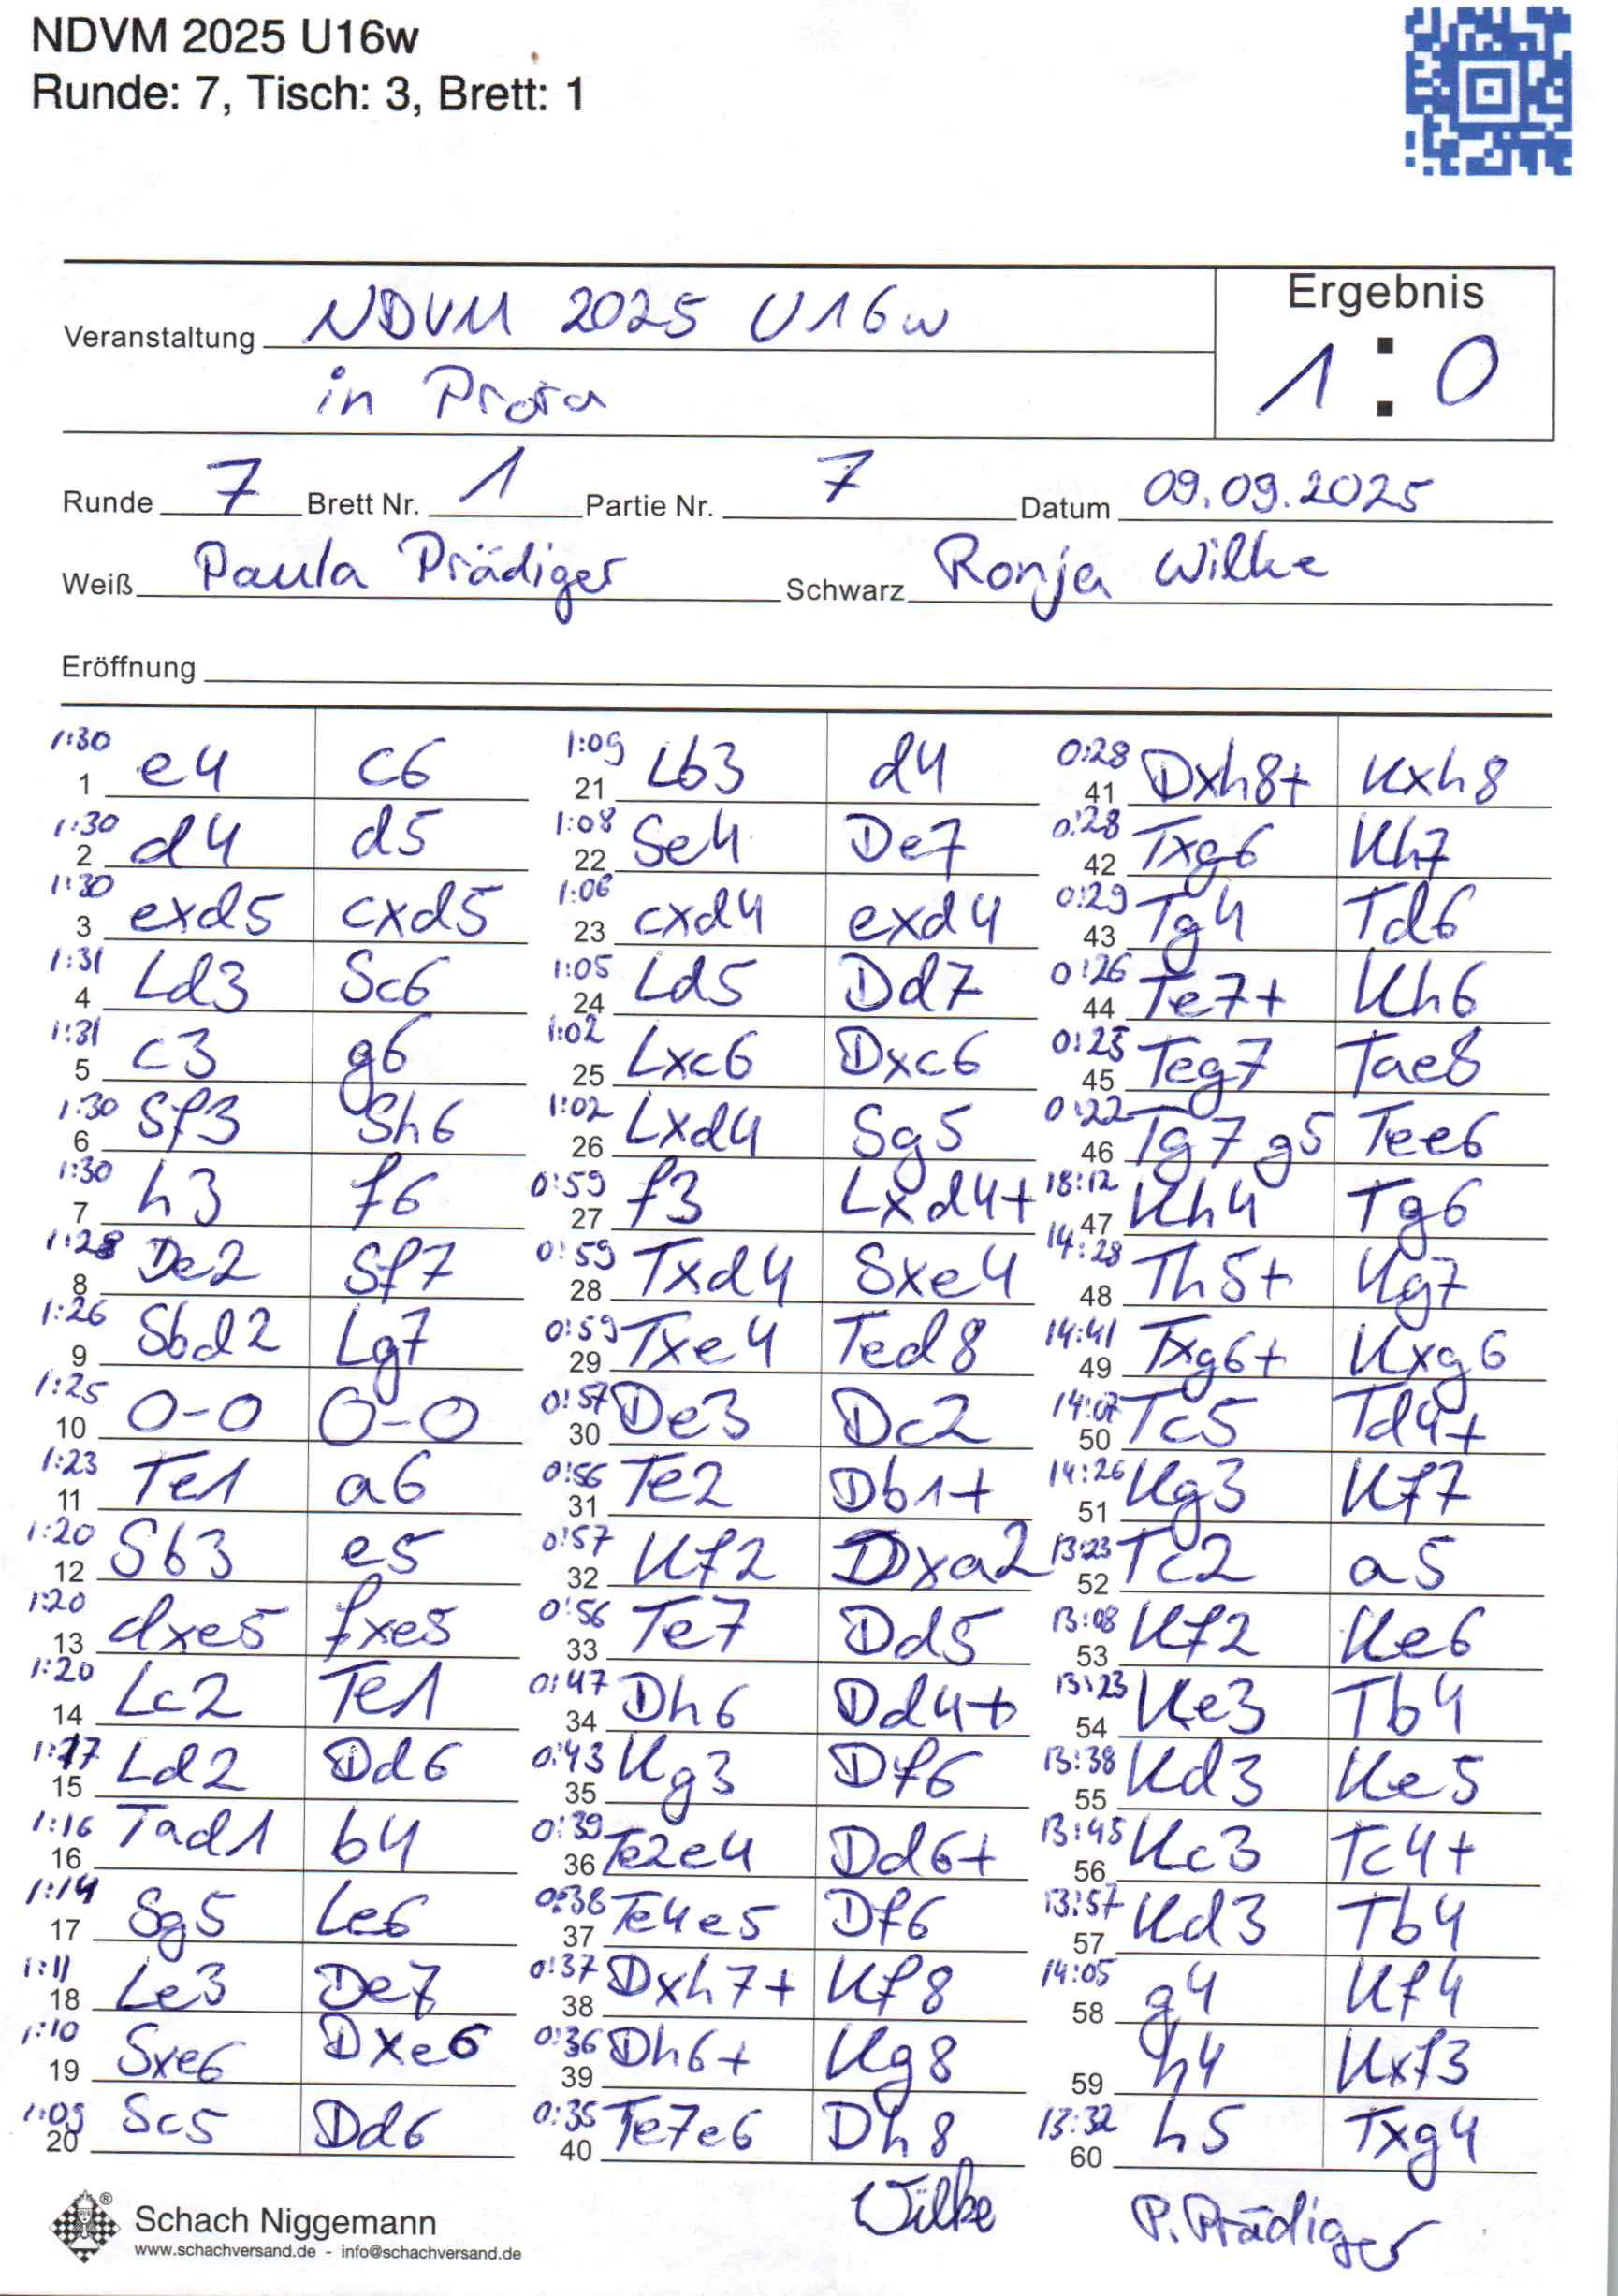 NDVM 2025 U16w
Runde: 7, Tisch: 3, Brett: 1
Veranstaltung NDVM 2025 U16w
in Prora
Ergebnis
1 : 0
Runde 7 Brett Nr. 1 Partie Nr. 7 Datum 09.09.2025
Weiß Paula Prädiger Schwarz Ronja Wilke
Eröffnung
1:30 1 e4 c6
1:30 2 d4 d5
1:30 3 exd5 cxd5
1:31 4 Ld3 Sc6
1:31 5 c3 g6
1:30 6 Sf3 Sh6
1:30 7 h3 f6
1:28 8 De2 Sf7
1:26 9 Sbd2 Lg7
1:25 10 0-0 0-0
1:23 11 Te1 a6
1:20 12 Sb3 e5
1:20 13 dxe5 fxe5
1:20 14 Lc2 Te1
1:17 15 Ld2 Dd6
1:16 16 Tad1 b4
1:14 17 Sg5 Le6
1:11 18 Le3 De7
1:10 19 Sxe6 Dxe6
1:09 20 Sc5 Dd6
1:09 21 Lb3 d4
1:08 22 Se4 De7
1:06 23 cxd4 exd4
1:05 24 Ld5 Dd7
1:02 25 Lxc6 Dxc6
1:02 26 Lxd4 Sg5
0:59 27 f3 Lxd4+
0:59 28 Txd4 Sxe4
0:59 29 Txe4 Ted8
0:57 30 De3 Dc2
0:56 31 Te2 Db1+
0:57 32 Kf2 Dxa2
0:56 33 Te7 Dd5
0:47 34 Dh6 Dd4+
0:43 35 Kg3 Df6
0:39 36 Te2e4 Dd6+
0:38 37 Te4e5 Df6
0:37 38 Dxh7+ Kf8
0:36 39 Dh6+ Kg8
0:35 40 Te7e6 Dh8
0:28 41 Dxh8+ Kxh8
0:28 42 Txg6 Kh7
0:29 43 Tg4 Td6
0:26 44 Te7+ Kh6
0:23 45 Teg7 Tae8
0:22 46 Tg7g5 Tee6
18:12 47 Kh4 Tg6
14:28 48 Th5+ Kg7
14:41 49 Txg6+ Kxg6
14:07 50 Tc5 Td4+
14:26 51 Kg3 Kf7
13:23 52 Tc2 a5
13:08 53 Kf2 Ke6
13:23 54 Ke3 Tb4
13:38 55 Kd3 Ke5
13:45 56 Kc3 Tc4+
13:57 57 Kd3 Tb4
14:05 58 g4 Kf4
59 h4 Kxf3
13:32 60 h5 Txg4
Wilke P. Prädiger
Schach Niggemann
www.schachversand.de - info@schachversand.de